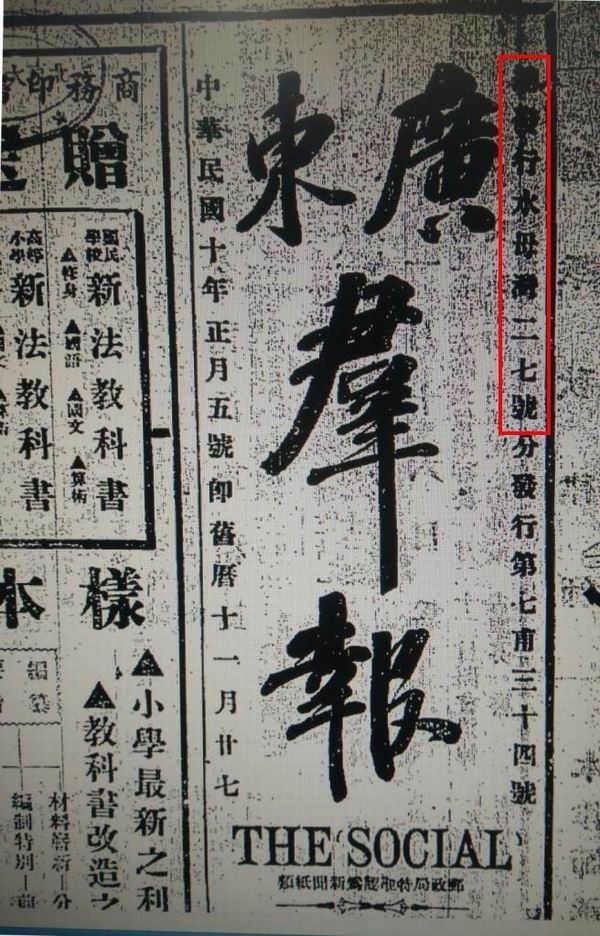 發行水母灣二七號分發行第七甫三十四號
廣東
羣
報
THE SOCIAL
郵政局特准認爲新聞紙類
中華民國十年正月五號即舊曆十一月廿七
商務印
贈
國民學校 新法教科書
▲修身 ▲國語 ▲國文 ▲算術
高等小學 新法教科書
樣本
▲小學最新之利
▲教科書改造之
材料嶄新—分
編制特別—